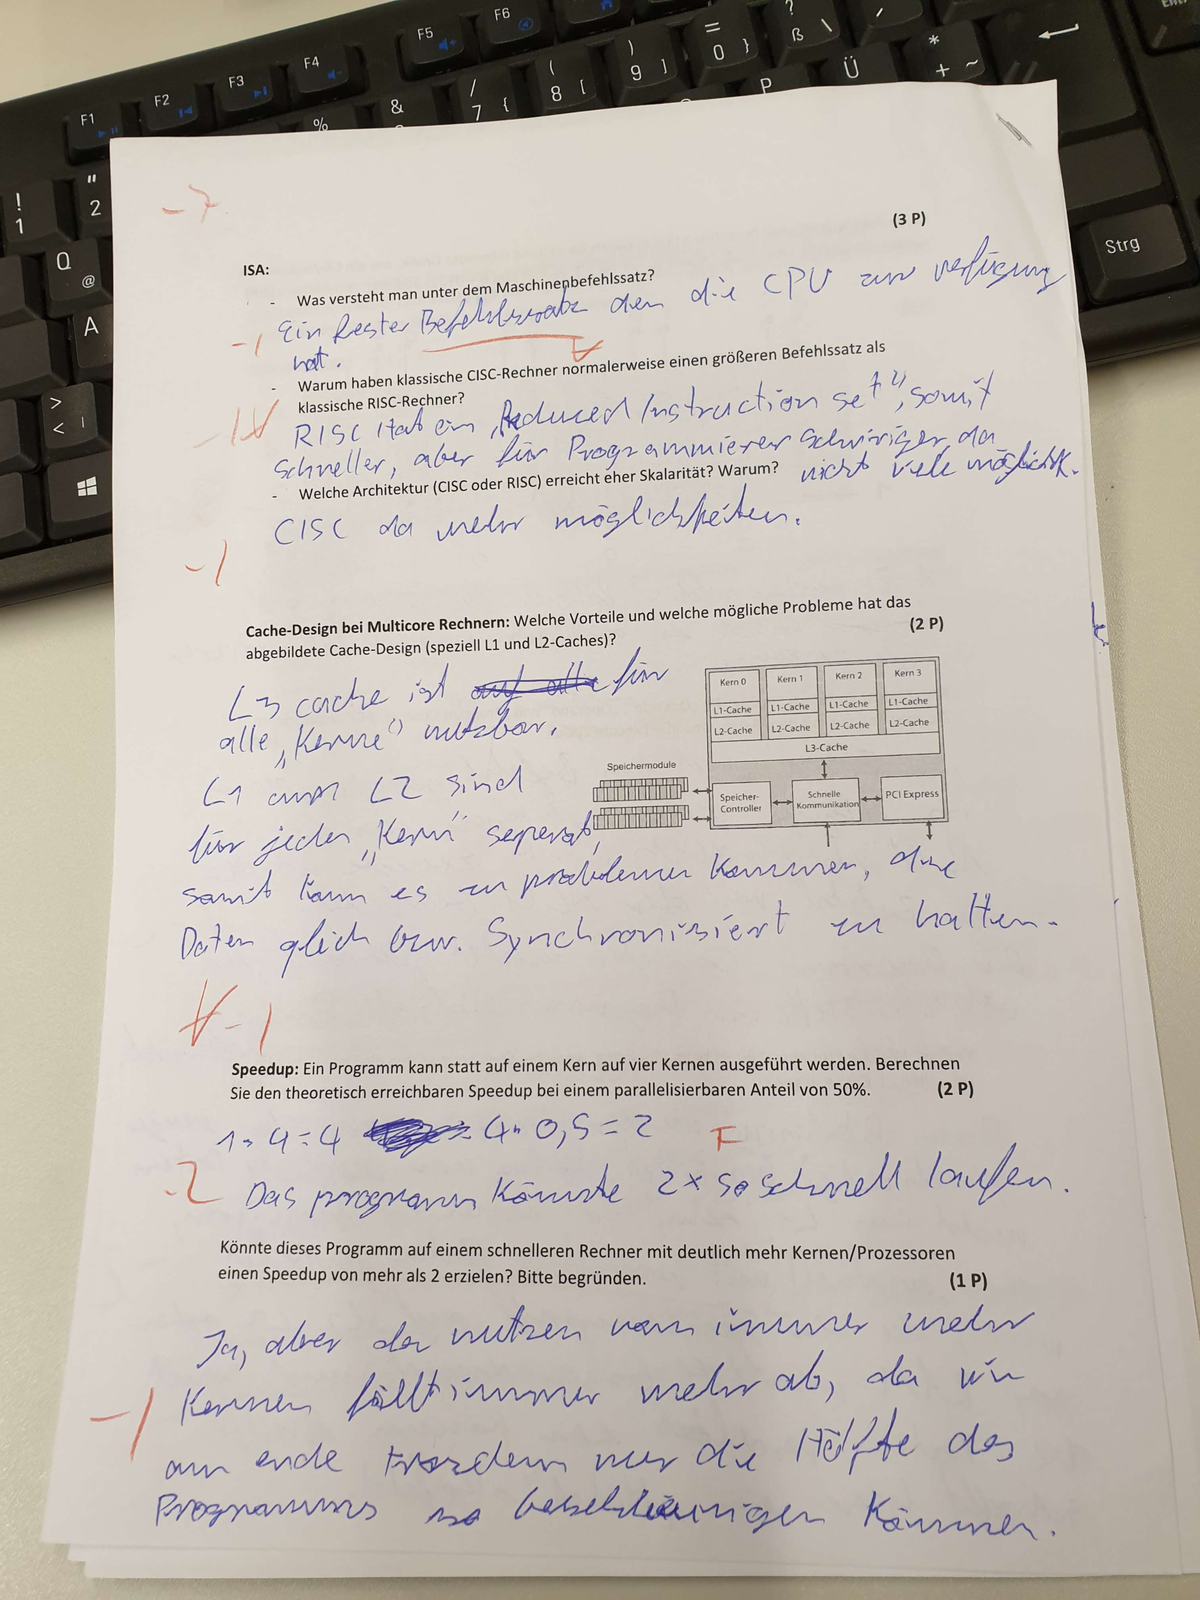 F1
F2
F3
F4
F5
F6
!
1
"
2
%
&
/
7 {
(
8 [
)
9 ]
=
0 }
?
ß \
Q
@
P
Ü
*
+ ~
A
>
< |
Strg
-7
(3 P)
ISA:
- Was versteht man unter dem Maschinenbefehlssatz?
Ein fester Befehlssatz den die CPU zur verfügung
-1
hat.
- Warum haben klassische CISC-Rechner normalerweise einen größeren Befehlssatz als
klassische RISC-Rechner?
-1
RISC Hat ein „Reduced Instruction set“, somit
schneller, aber für Programmierer schwiriger, da
nicht viele möglichk.
- Welche Architektur (CISC oder RISC) erreicht eher Skalarität? Warum?
CISC da mehr möglichkeiten.
-1
Cache-Design bei Multicore Rechnern: Welche Vorteile und welche mögliche Probleme hat das
abgebildete Cache-Design (speziell L1 und L2-Caches)? (2 P)
L3 cache ist auf alle für
alle „Kerne“ nutzbar.
L1 und L2 sind
für jeden „Kern“ seperat,
somit kann es zu problemen kommen, die
Daten glich bzw. Synchronisiert zu halten.
Kern 0 Kern 1 Kern 2 Kern 3
L1-Cache L1-Cache L1-Cache L1-Cache
L2-Cache L2-Cache L2-Cache L2-Cache
L3-Cache
Speichermodule
Speicher-
Controller
Schnelle
Kommunikation
PCI Express
-1
Speedup: Ein Programm kann statt auf einem Kern auf vier Kernen ausgeführt werden. Berechnen
Sie den theoretisch erreichbaren Speedup bei einem parallelisierbaren Anteil von 50%. (2 P)
1 * 4 = 4 4 * 0,5 = 2 F
-2
Das programm könnte 2x so schnell laufen.
Könnte dieses Programm auf einem schnelleren Rechner mit deutlich mehr Kernen/Prozessoren
einen Speedup von mehr als 2 erzielen? Bitte begründen. (1 P)
Ja, aber der nutzen von immer mehr
-1
Kernen fällt immer mehr ab, da wir
am ende trozdem nur die Hälfte des
Programms so beschleunigen können.